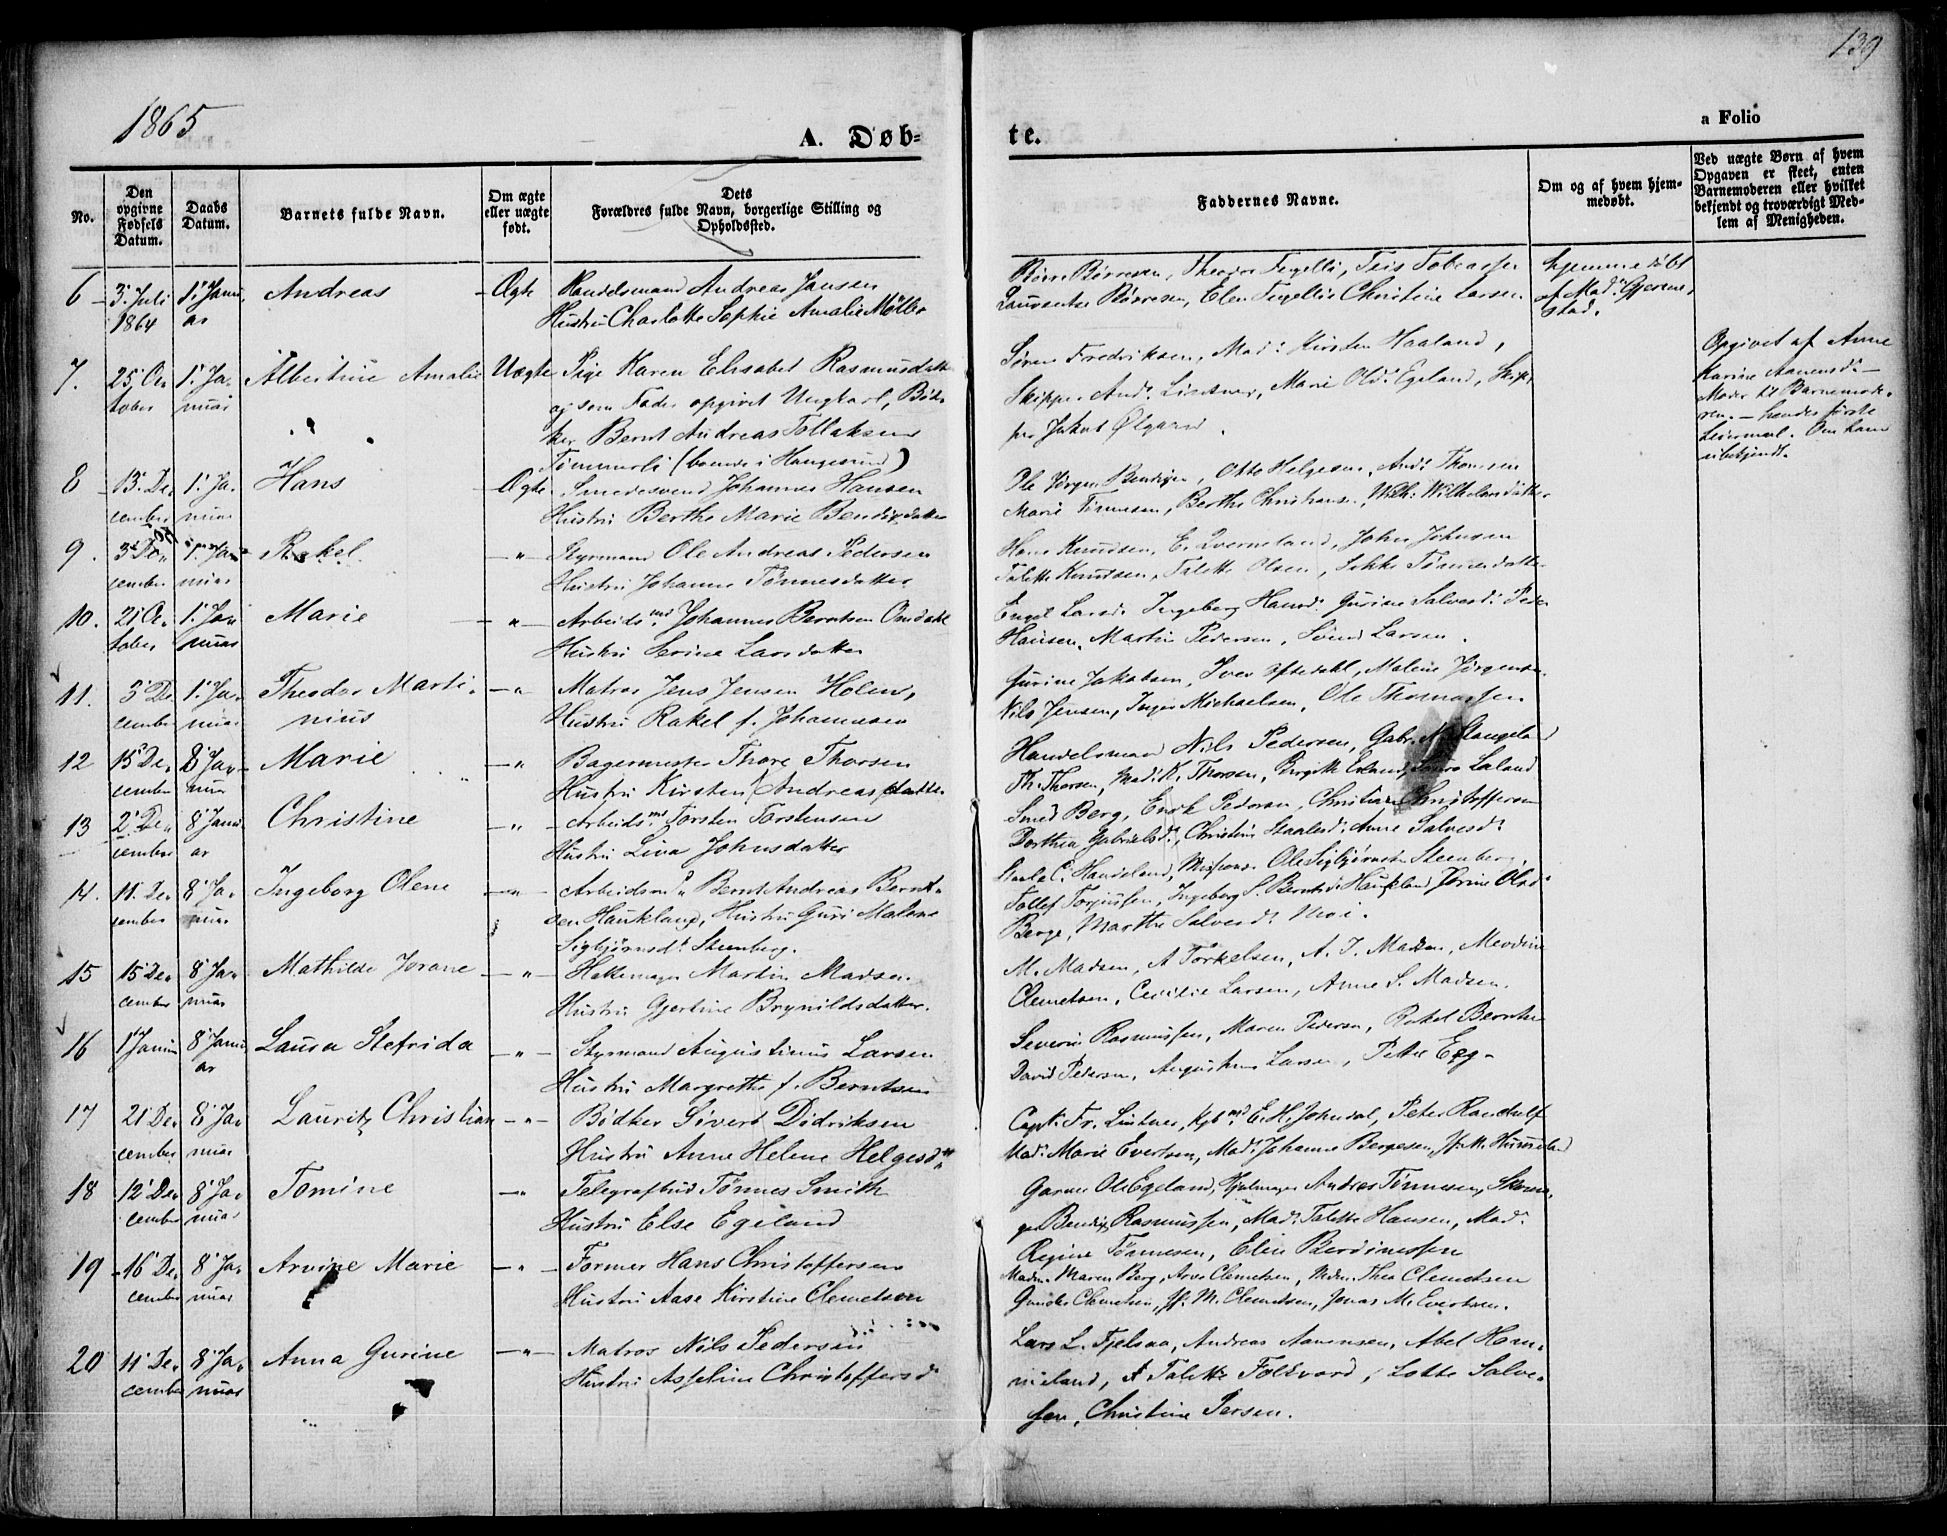 139
1865
A. Døb-
te.
a Folio
No.
Den opgivne Fødsels Datum.
Daabs Datum.
Barnets fulde Navn.
Om ægte eller uægte født.
Dets
Forældres fulde Navn, borgerlige Stilling og
Opholdssted.
Faddernes Navne.
Om og af hvem hjem-
medøbt.
Ved uægte Børn af hvem
Opgaven er skeet, enten
Barnemoderen eller hvilket
bekjendt og troværdigt Med-
lem af Menigheden.
6 3' Juli 1' Janu Andreas Ægte Handelsmand Andreas Jansen
1864 ar Hustru Charlotte Sophie Amalie Møller
Børre Børresen, Theodor Fegelli, Teis Tobiassen
Børresen, Elen Christine Larsen
hjemmedøbt
af Mad:
stad.
7. 25' Oc 1' Ja- Albertine Amalie Uægte Pige Karen Elisabet Rasmusdatt
tober nuar og som Fader opgivet Ungkarl, Bød-
ker Bernt Andreas Tollaksen
Tømmerli (boende i Haugesund)
Søren Fredriksen, Mad: Kirsten Haaland,
Skipper And: Lindtner, Marie Olsd: Egeland, Skip-
per Jakob Ølgaard.
Opgivet af Anne
Karine Aanensd: -
Moder til Barnemode-
ren. - hendes første
Leiermaal. Om ham
ubekjendt.
8 13' De- 1' Ja- Hans Ægte Smedesvend Johannes Hansen
cember nuar Hustru Berthe Marie Bendixdatter
Ole Jørgen Bendixen, Otto Helgesen, And: Thomsen
Marie Tønnesen, Berthe Christians, Wilh: Wilhelmsdatter
9. 3' De- 1' Janu Rakel " Styrmand Ole Andreas Pedersen
cember nuar Hustru Johanne Tønnesdatter
Hans Knudsen, E. Qverneland, John Johnsen
Talette Knudsen, Talette Olsen, Tønnesdatter
10. 21' Oc 1' Jan Marie " Arbeidsmd Johannes Berntsen Omdahl
tober nuar Hustru Serine Larsdatter
Engel Larsd: Ingeborg Hansd: Gurine Salvesd: Peder
Hansen, Martin Pedersen, Svend Larsen.
11. 3' De 1' Ja- Theodor Marti- " Matros Jens Jensen Holen,
cember nuar nius Hustru Rakel f. Johannesen
Gurine Jakobsen, Iver Oftedahl, Malene Jørgensen
Nils Jensen, Inger Michaelsen, Ole Thomassen.
12 15' De- 8' Jan- Marie " Bagermester Thore Thorsen
cember nuar Hustru Kirsten Andreasdatter
Handelsmand Nils Pedersen, Gabr. Stangeland
Th. Thorsen, Mad: K. Thorsen, Birgitte Laland
13 2' De- 8' Janu Christine " Arbeidsmd Torsten Torstensen
cember ar Hustru Live Johnsdatter
Smed Berg, Erik Pedersen, Christiane Christoffersen
Dorthea Gabrielsd:, Christine Staalesd: Anne Salvesd:
14. 11. De- 8' Ja- Ingeborg Olene " Arbeidsmd Bernt Andreas Bernt-
cember nuar sen Haukland, Hustru Guri Malene
Sigbjørnsd: Steenberg.
C. Haneland, Ole Sigbjørnsen Steenberg,
Tollef Torjussen, Ingeborg S. Berntsd: Haukland, Olsd:
Berge, Marthe Salvesd: Moi.
15 15' De- 8' Ja- Mathilde Jorane " Hattemager Martin Madsen.
cember nuar Hustru Gjertine Brynildsdatter.
M. Madsen, A Torkelsen, A. T. Madsen,
Clemetsen, Cecilie Larsen, Anne S. Madsen.
16 1' Januar 8' Janu- Laura Stefrida " Styrmand Augustinus Larsen
ar Hustru Margrethe f. Berntsen
Severin Rasmussen, Maren Pedersen, Rakel Berntsen
David Pedersen, Augustinus Larsen, Petre Eeg-
17 21' De- 8' Ja- Lauritz Christian " Bødker Sivert Didriksen
cember nuar Hustru Anne Helene Helgesd:
Capt: Fr. Lintner, Kjbmd: E. H. Johndal, Peter Randulf
Mad: Marie Evertsen, Mad: Johanne Bergesen, Jf. M. Hummeland
18 12' De- 8' Ja- Tomine " Telegrafbud Tønnes Smith
cember nuar Hustru Else Egeland
Garver Ole Egeland, Hjulmager Andreas Tønnesen, Skoma-
ger Bendix Rasmussen, Mad: Talette Hansen, Mad:
Regine Tønnesen, Elen Berdinessen
19 16' De- 8' Ja- Arvine Marie " Former Hans Christoffersen
cember nuar Hustru Aase Kirstine Clemetsen
Madm. Maren Berg, Arve Clemetsen, Mdm. Thea Clemetsen
Gunder Clemetsen, Jf. M. Clemetsen, Jonas M. Evertsen.
20 11' De- 8' Ja- Anna Gurine " Matros Nils Pedersen
cember nuar Hustru Asseline Christoffersd:
Lars L. Fjelsaa, Andreas Aanensen, Abel Hom-
meland, Talette Folkvord, Lotte Salve-
sen, Christine Persen.